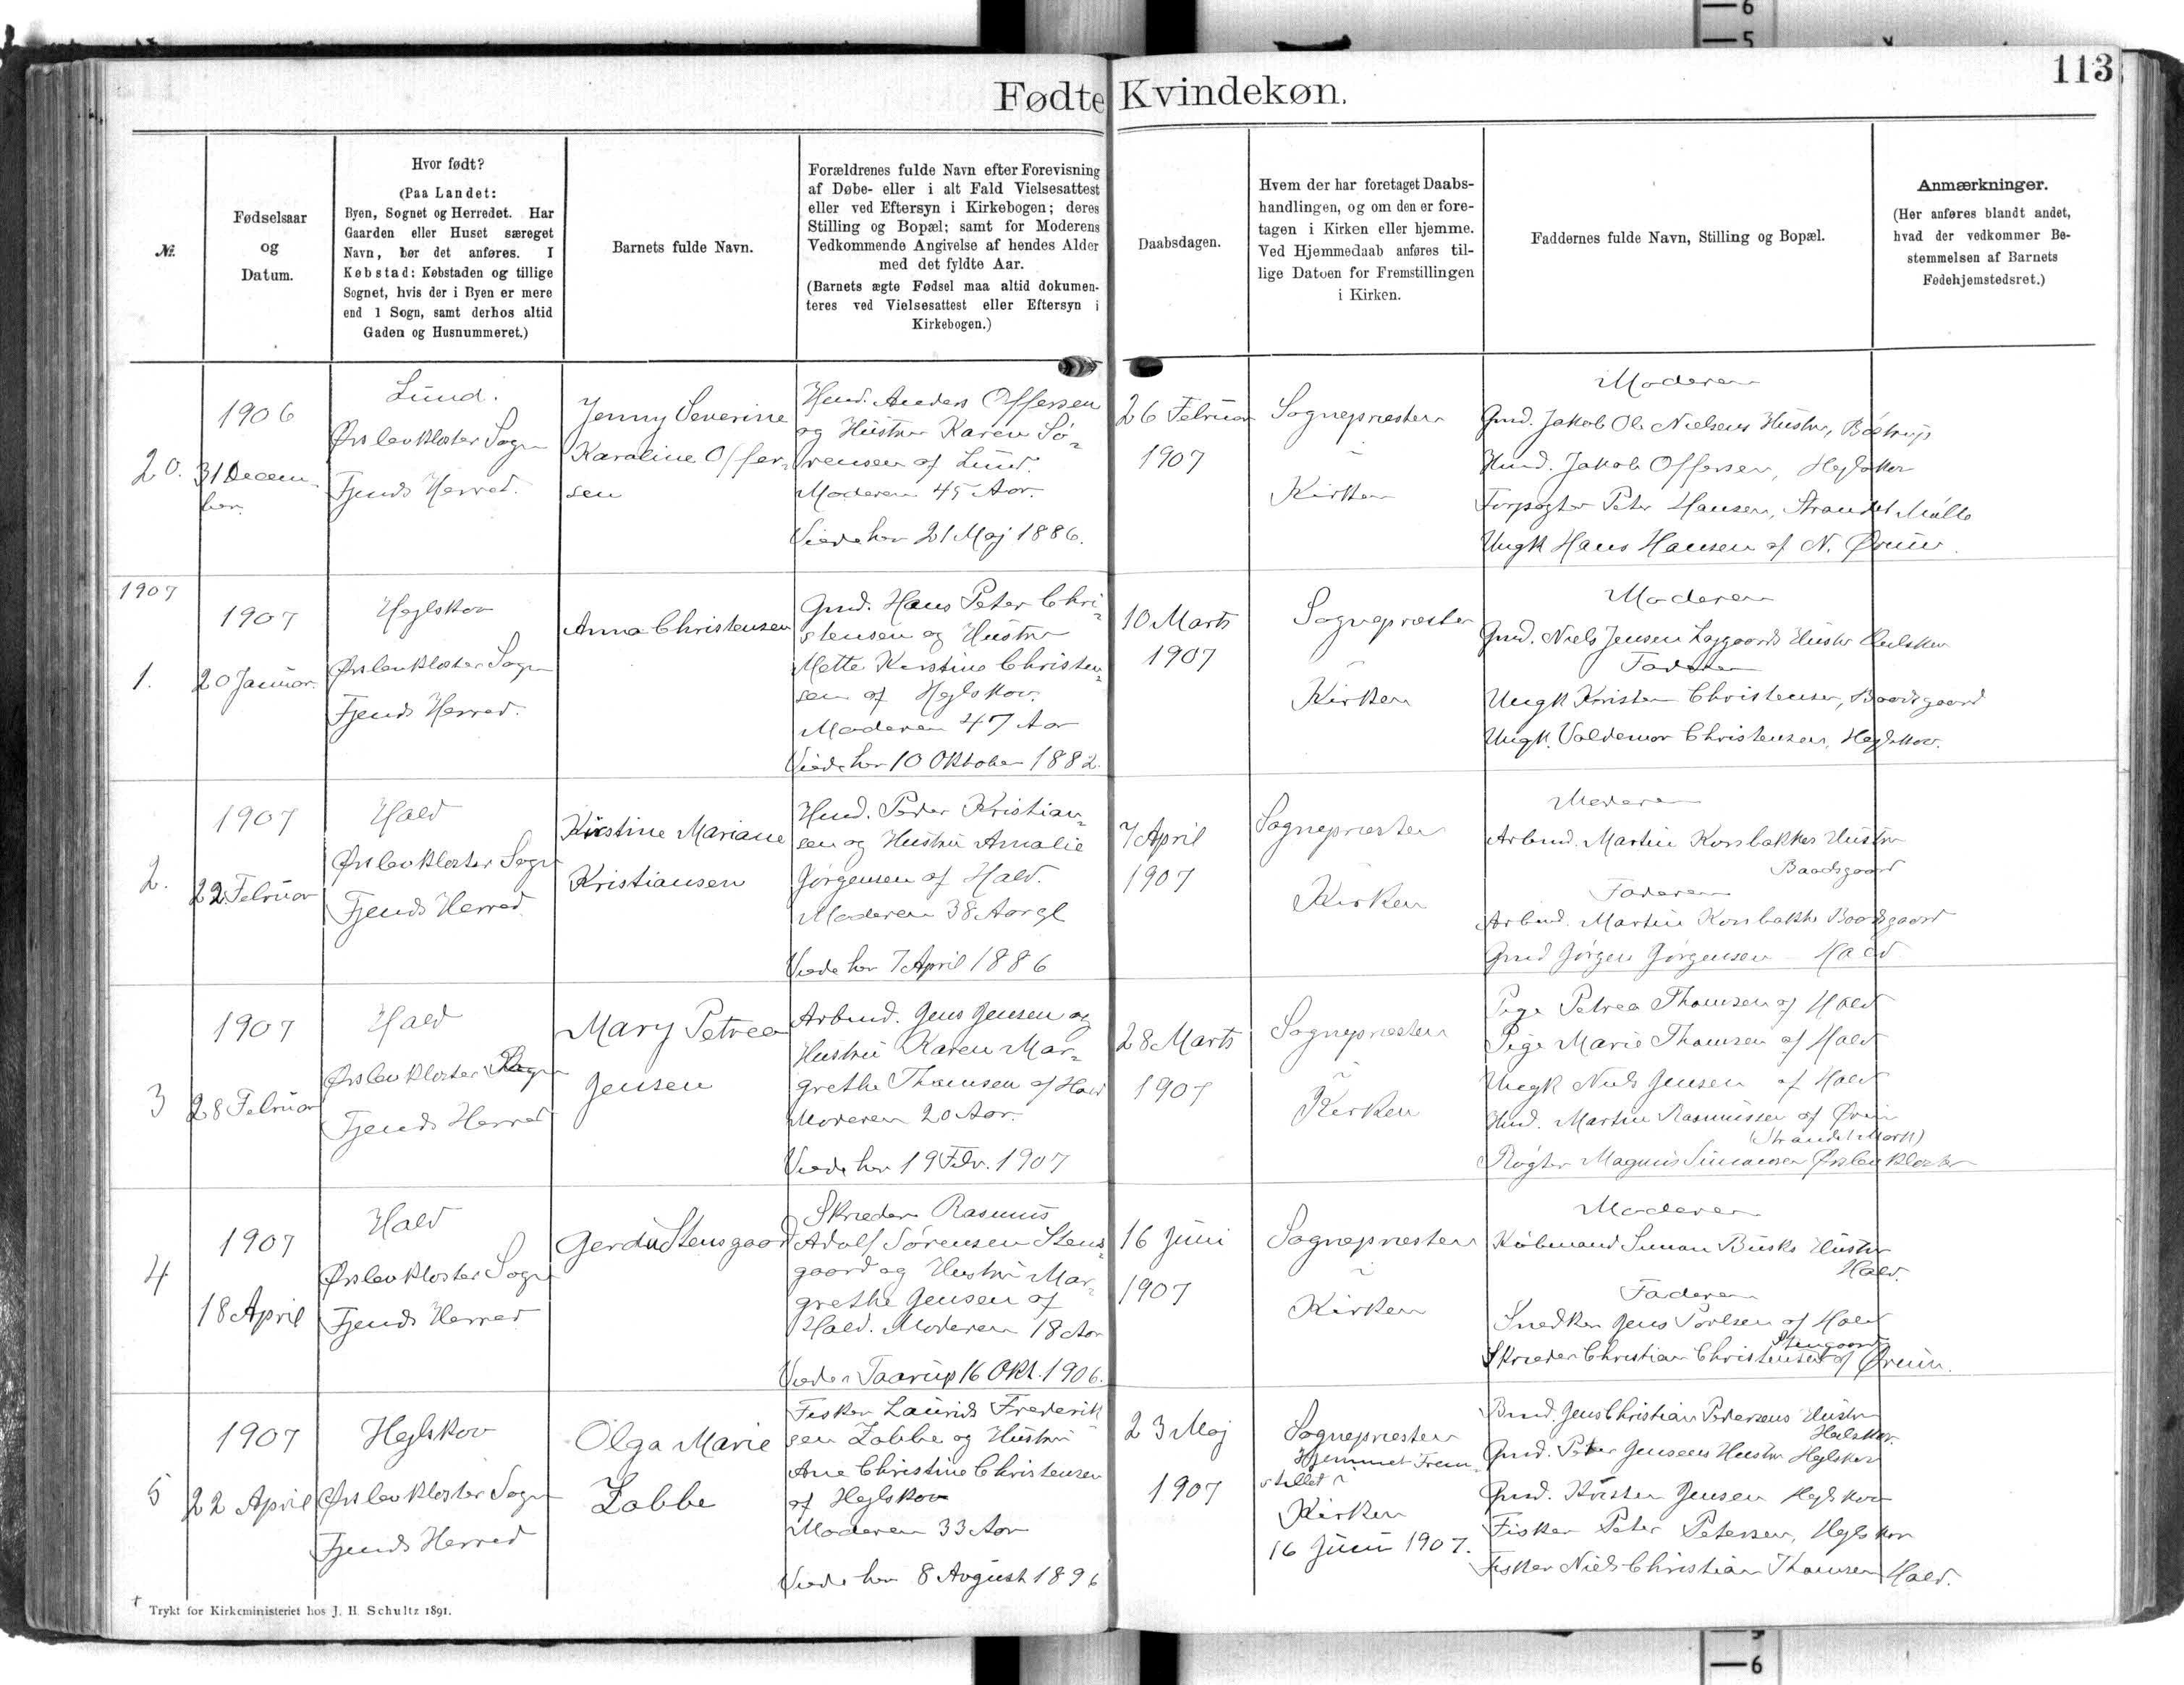 113
Fødte Kvindekøn.
№.
Fødselsaar
og
Datum.
Hvor født?
(Paa Landet:
Byen, Sognet og Herredet. Har
Gaarden eller Huset særeget
Navn, bør det anføres. I
Købstad: Købstaden og tillige
Sognet, hvis der i Byen er mere
end 1 Sogn, samt derhos altid
Gaden og Husnummeret.)
Barnets fulde Navn.
Forældrenes fulde Navn efter Forevisning
af Døbe- eller i alt Fald Vielsesattest
eller ved Eftersyn i Kirkebogen; deres
Stilling og Bopæl; samt for Moderens
Vedkommende Angivelse af hendes Alder
med det fyldte Aar.
(Barnets ægte Fødsel maa altid dokumen-
teres ved Vielsesattest eller Eftersyn i
Kirkebogen.)
Daabsdagen.
Hvem der har foretaget Daabs-
handlingen, og om den er fore-
tagen i Kirken eller hjemme.
Ved Hjemmedaab anføres til-
lige Datoen for Fremstillingen
i Kirken.
Faddernes fulde Navn, Stilling og Bopæl.
Anmærkninger.
(Her anføres blandt andet,
hvad der vedkommer Be-
stemmelsen af Barnets
Fødehjemstedsret.)
20.
1906
31 Decem-
ber.
Lund.
Ørslevkloster Sogn
Fjends Herred.
Jenny Severine
Karaline Offer-
sen
Husd. Anders Offersen
og Hustru Karen Sø-
rensen af Lund.
Moderen 45 Aar.
Viede her 21 Maj 1886.
26 Februar
1907
Sognepræsten
i
Kirken
Moderen
Gmd. Jakob Ole Nielsens Hustru, Bøstrup
Husd. Jakob Offersen, Hejlskov
Forpagter Peter Hansen, Strandet Mølle
Ungk Hans Hansen af N. Ørum.
1907
1.
1907
20 Januar.
Hejlskov
Ørslevkloster Sogn
Fjends Herred.
Anna Christensen
Gmd. Hans Peter Chri-
stensen og Hustru
Mette Kirstine Christen-
sen af Hejlskov.
Moderen 47 Aar
Viede her 10 Oktober 1882.
10 Marts
1907
Sognepræsten
i
Kirken
Moderen
Gmd. Niels Jensen Hustru Hejlskov
Faderen
Ungk Kristen Christensen, Baadsgaard
Ungk. Valdemar Christensen, Hejlskov.
2.
1907
22 Februar
Hald
Ørslevkloster Sogn
Fjends Herred
Kirstine Mariane
Kristiansen
Husd. Peder Kristian-
sen og Hustru Amalie
Jørgensen af Hald.
Moderen 38 Aar gl
Viede her 7 April 1886
7 April
1907
Sognepræsten
Kirken
Moderen
Arbmd. Martin Korsbakkes Hustru
Baadsgaard
Faderen
Arbmd. Martin Korsbakke Baadsgaard
Gmd Jørgen Jørgensen - Hald
3
1907
28 Februar
Hald
Ørslevkloster Sogn
Fjends Herred
Mary Petrea
Jensen
Arbmd. Jens Jensen og
Hustru Karen Mar-
grethe Thomsen af Hald
Moderen 20 Aar.
Viede her 19 Febr. 1907
28 Marts
1907
Sognepræsten
i
Kirken
Pige Petrea Thomsen af Hald
Pige Marie Thomsen af Hald
Ungk Niels Jensen af Hald
Husd. Martin Rasmussen af Ørum
(Strandet Mark)
Røgter Magnus Simonsen Ørslevkloster
4
1907
18 April
Hald
Ørslevkloster Sogn
Fjends Herred
Gerda Stensgaard
Skræder Rasmus
Adolf Sørensen Stens-
gaard og Hustru Mar-
grethe Jensen af
Hald. Moderen 18 Aar
Viede i Taarup 16 Okt. 1906.
16 Juni
1907
Sognepræsten
i
Kirken
Moderen
Købmand Simon Busks Hustru
Hald.
Faderen
Snedker Jens Poulsen af Hald
Stensgaard
Skræder Christian Christensen af Ørum.
5
1907
22 April
Hejlskov
Ørslevkloster Sogn
Fjends Herred
Olga Marie
Labbe
Fisker Laurids Frederik
sen Labbe og Hustru
Ane Christine Christensen
af Hejlskov
Moderen 33 Aar
Viede her 8 August 1896
23 Maj
1907
Sognepræsten
Hjemmet Frem-
stillet i
Kirken
16 Juni 1907.
Bmd. Jens Christian Pedersens Hustru
Hejlskov.
Gmd. Peter Jensens Hustru Hejlskov
Gmd. Kristen Jensen Hejlskov
Fisker Peter Petersen, Hejlskov
Fisker Niels Christian Thomsen Hald.
Trykt for Kirkeministeriet hos J. H. Schultz 1891.